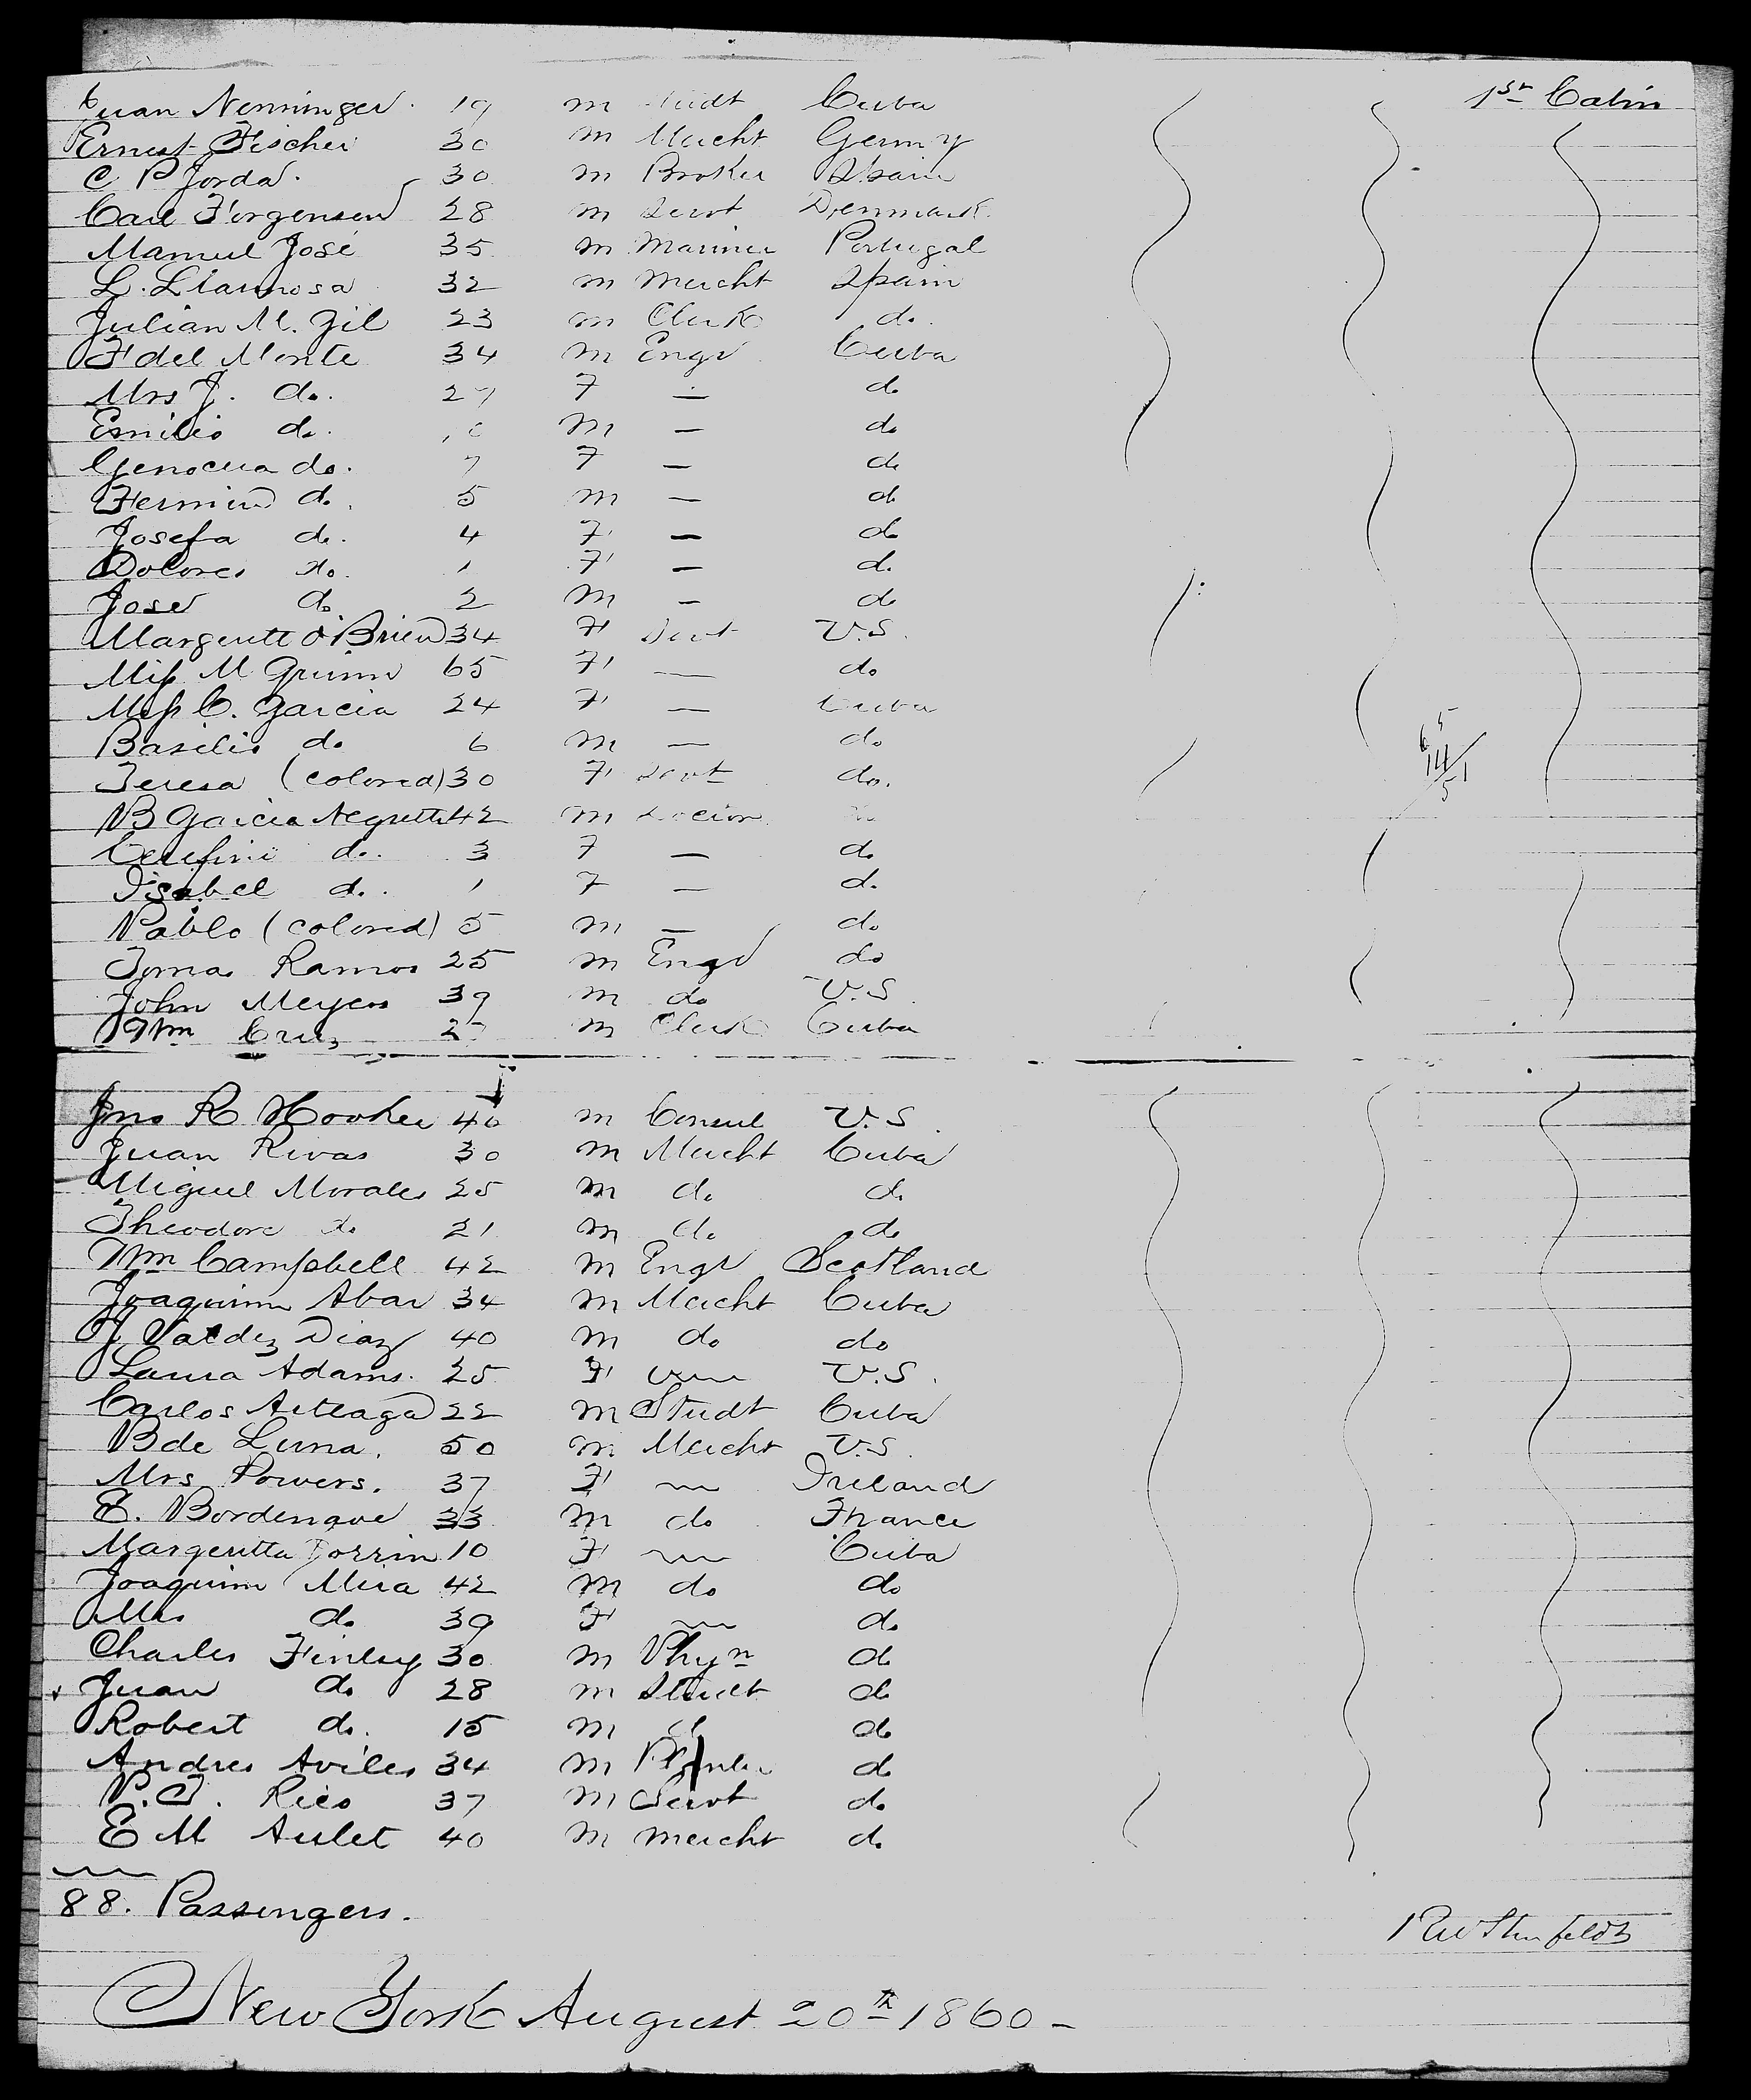 Juan Nenninger. 19 m Studt Cuba 1st Cabin
Ernest Fischer 30 m Mercht Germy
C P Jorda. 30 m Broker Spain
Carl Jorgensen 28 m Servt Denmark.
Manuel José 35 m Mariner Portugal
L. Llamosa 32 m Mercht Spain
Julian M. Gil 23 m Clerk do.
F del Monte 34 m Engr Cuba
Mrs J. do. 27 F — do
Emilio do. m — do
do. 7 F — do
Fermin do. 5 m — do
Josefa do. 4 F — do
Dolores do. 1 F — do.
José do 2 m — do
Margeritt O'Brien 34 F Servt U.S.
Miss M Quinn 65 F — do
Miss C. Garcia 24 F — Cuba
Basilio do 6 m — do
Teresa (colored) 30 F Servt do.
B Garcia Negrette 42 m do
do. 3 F — do
Isabel do. 1 F — do.
Pablo (colored) 5 m — do
Tomas Ramos 25 m Engr do
John Meyers 39 m do U.S.
Wm Cruz m Clerk Cuba
Jno R Hooker 40 m Consul U.S.
Juan Rivas 30 m Mercht Cuba
Miguel Morales 25 m do do.
Theodore do 21 m do do
Wm Campbell 42 m Engr Scotland
Joaquim Abar 34 m Mercht Cuba
J Valdez Diaz 40 m do do
Laura Adams. 25 F U.S.
Carlos Arteaga 22 m Studt Cuba
B de Luna. 50 m Mercht U.S.
Mrs Powers. 37 F Ireland
E. Bordenave 33 m do France
Margeritta 10 F Cuba
Joaquim Mira 42 m do do
Mrs do 39 F do
Charles Finlay 30 m Phyn do
Juan do 28 m Studt do
Robert do. 15 m do do
Andres Aviles 34 m Planter do
P. J. Rico 37 m Servt do
E M Aulet 40 m mercht do.
88. Passengers.
New York August 20th 1860 –